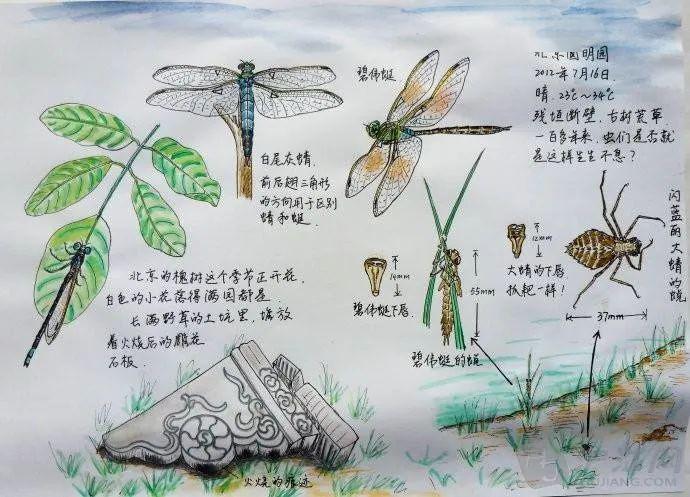 北京圆明园
2012年7月16日.
晴.23℃~34℃
残垣断壁,古树荒草.
一百多年来,虫们是否就
是这样生生不息?
碧伟蜓
白尾灰蜻.
前后翅三角形
的方向用于区别
蜻和蜓.
北京的槐树这个季节正开花,
白色的小花落得满园都是.
长满野草的土坑里,堆放
着火烧后的雕花
石板.
14mm
碧伟蜓下唇
55mm
碧伟蜓的蜕
12mm
大蜻的下唇
抓耙一样!
闪蓝丽大蜻的蜕
37mm
火烧的痕迹